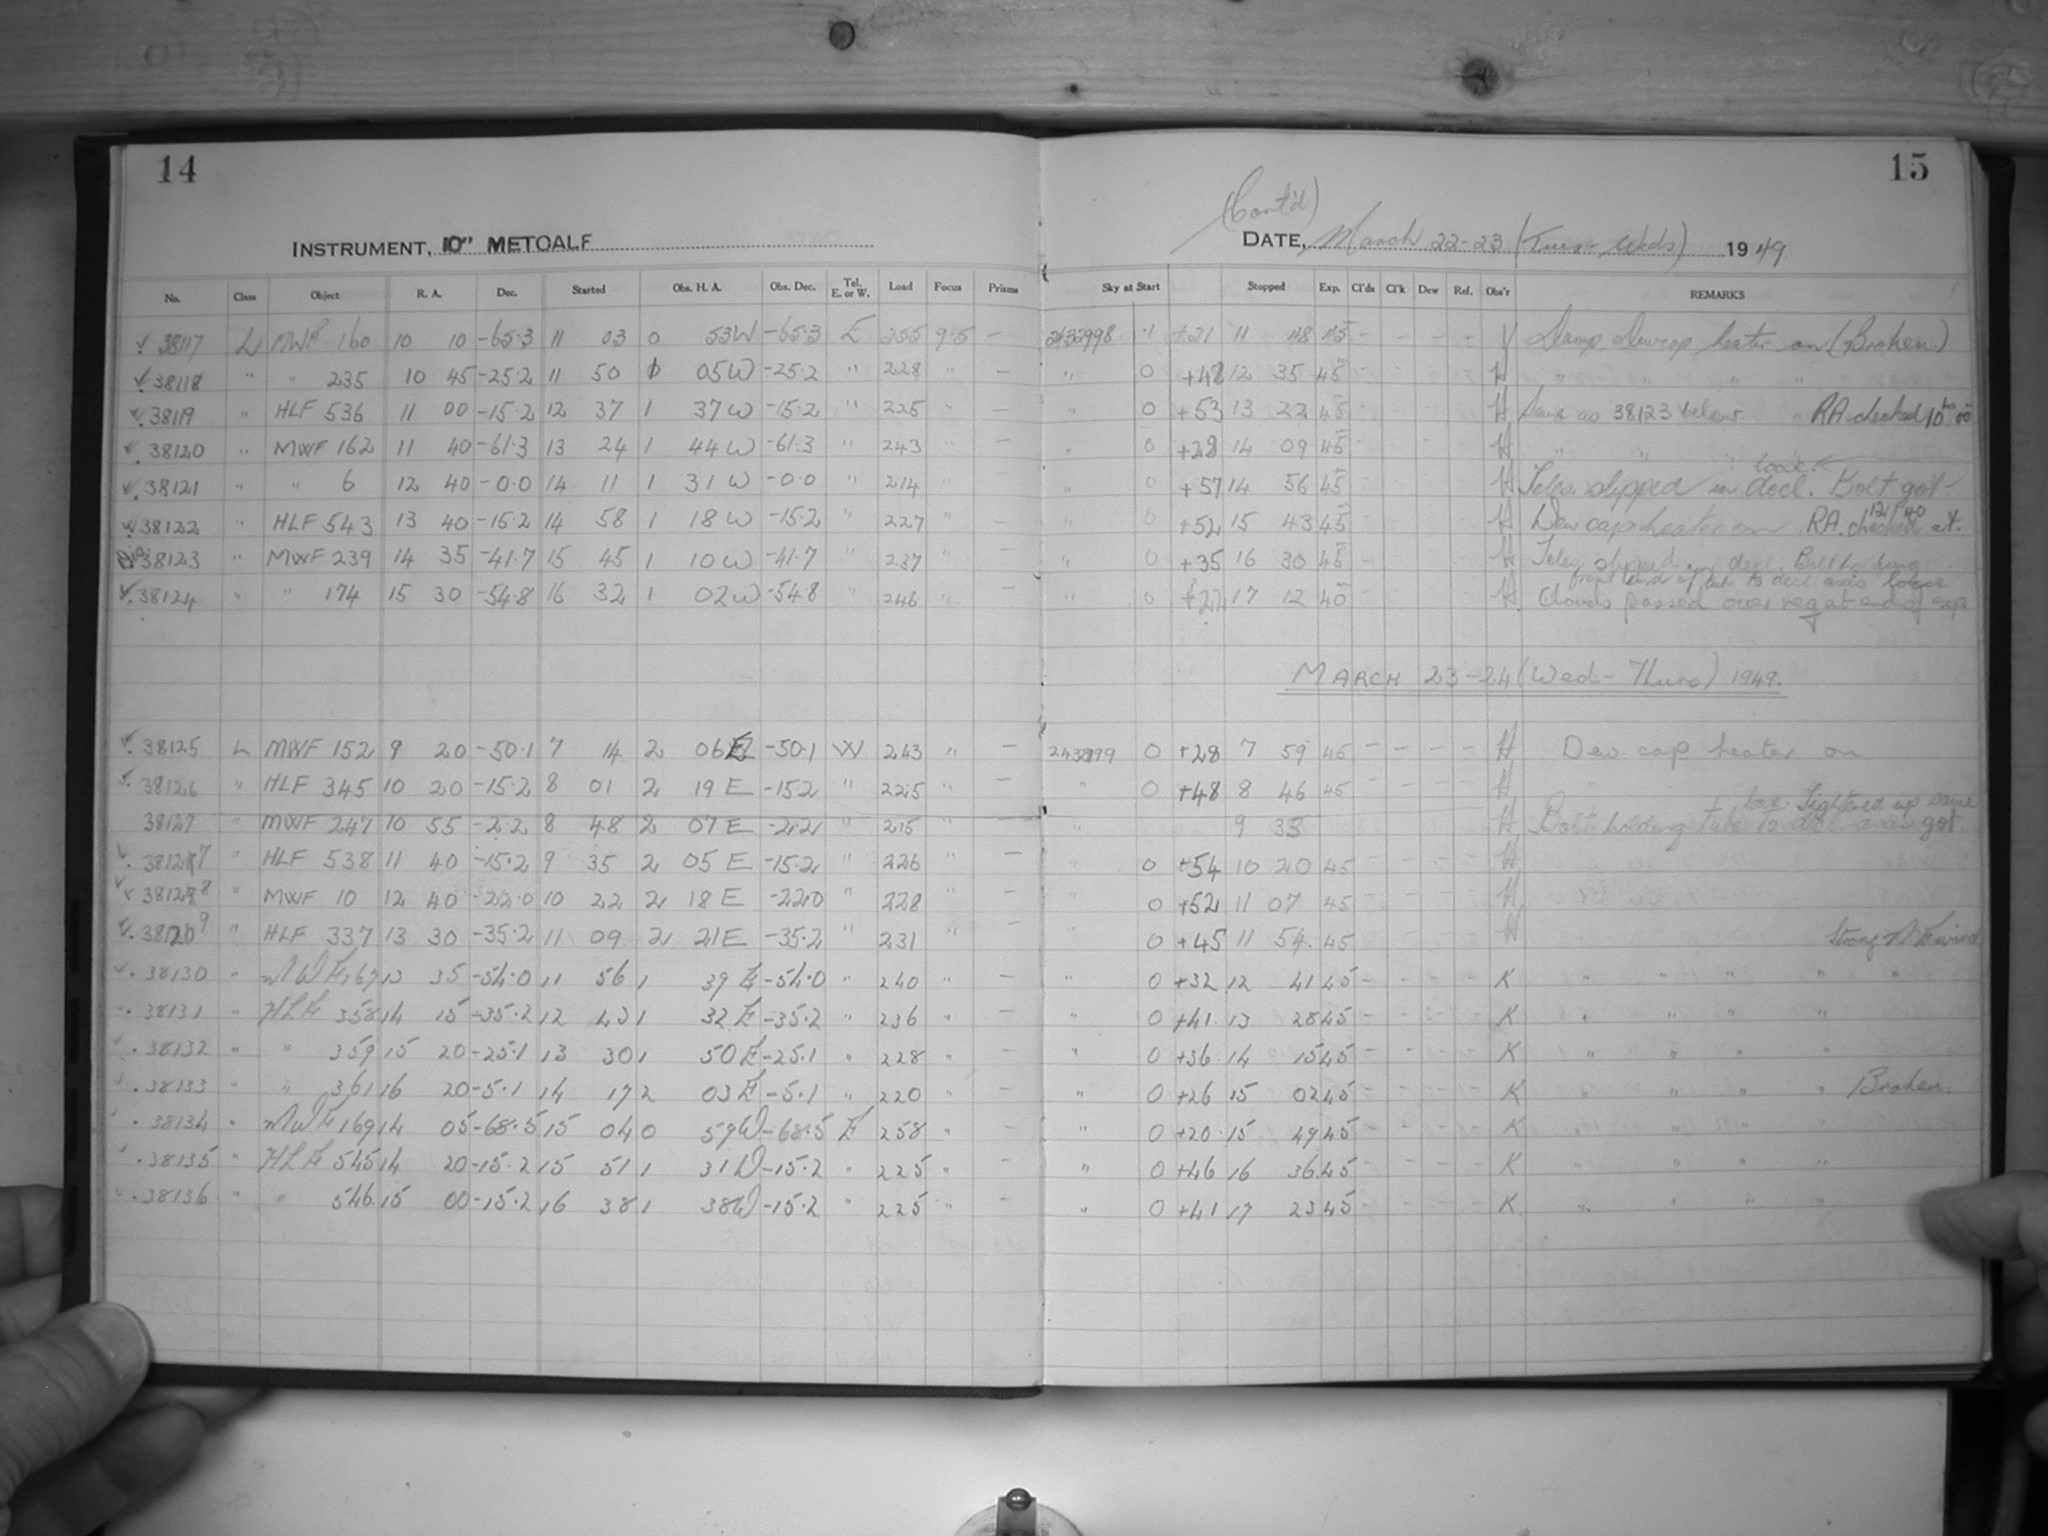 14
15
(Cont'd)
INSTRUMENT, 10" METCALF
DATE, March 22-23 (Tues-Weds) 1949
No. Class Object R. A. Dec. Started Obs. H. A. Obs. Dec. Tel. E. or W. Load Focus Prisms Sky at Start Stopped Exp. Cl'ds Cl'k Dew Ref. Obs'r REMARKS
38117 L MWF 160 10 10 -65.3 11 03 0 53W -65.3 E 255 9.5 – 2432998 .1 +21 11 48 45 - - - - Damp. Dewcap heater on (Broken)
38118 " " 235 10 45 -25.2 11 50 0 05W -25.2 " 228 " – " 0 +48 12 35 45 - - - - H " " " " "
38119 " HLF 536 11 00 -15.2 12 37 1 37W -15.2 " 225 " – " 0 +53 13 22 45 - - - - H Same as 38123 below. " RA checked 10 00
38120 " MWF 162 11 40 -61.3 13 24 1 44W -61.3 " 243 " – " 0 +28 14 09 45 - - - - H " " "
38121 " " 6 12 40 -0.0 14 11 1 31W -0.0 " 214 " – " 0 +57 14 56 45 - - - - H Teles. slipped in decl. Bolt got loose
38122 " HLF 543 13 40 -15.2 14 58 1 18W -15.2 " 227 " – " 0 +52 15 43 45 - - - - H Dew cap heater on RA. checked at. 12 40
38123 " MWF 239 14 35 -41.7 15 45 1 10W -41.7 " 237 " – " 0 +35 16 30 45 - - - - H Teles slipped in decl. Bolt locking
front end of tube to decl. axis loose
38124 " " 174 15 30 -54.8 16 32 1 02W -54.8 " 246 " – " 0 +22 17 12 40 - - - - H Clouds passed over reg at end of exp
MARCH 23-24 (Wed-Thurs) 1949.
38125 L MWF 152 9 20 -50.1 7 14 2 06E -50.1 W 243 " – 0 +28 7 59 45 - - - - H Dew cap heater on
38126 " HLF 345 10 20 -15.2 8 01 2 19E -15.2 " 225 " – " 0 +48 8 46 45 - - - - H
loose. Tightened up same
38127 " MWF 247 10 55 -2.2 8 48 2 07E -2.2 " 215 " – " 9 33 H Bolt holding tube to decl. axis got
381287 " HLF 538 11 40 -15.2 9 35 2 05E -15.2 " 226 " – " 0 +54 10 20 45 H
381298 " MWF 10 12 40 -22.0 10 22 2 18E -22.0 " 228 " – " 0 +52 11 07 45 - - - - H
9 " HLF 337 13 30 -35.2 11 09 2 21E -35.2 " 231 " – " 0 +45 11 54 45 H Strong NE wind
38130 " MWF 167 13 35 -54.0 11 56 1 39E -54.0 " 240 " – " 0 +32 12 41 45 - - - - K " " " " "
38131 " HLF 358 14 15 -35.2 12 43 1 32E -35.2 " 236 " – " 0 +41 13 28 45 - - - - K " " " "
38132 " " 359 15 20 -25.1 13 30 1 50E -25.1 " 228 " – " 0 +36 14 15 45 - - - - K " " " "
38133 " " 361 16 20 -5.1 14 17 2 03E -5.1 " 220 " – " 0 +26 15 02 45 - - - - K " " " " Broken.
38134 " MWF 169 14 05 -68.5 15 04 0 59W -68.5 E 258 " – " 0 +20 15 49 45 - - - - K " " " "
38135 " HLF 545 14 20 -15.2 15 51 1 31W -15.2 " 225 " – " 0 +46 16 36 45 - - - - K " " " "
38136 " " 546 15 00 -15.2 16 38 1 38W -15.2 " 225 " – " 0 +41 17 23 45 - - - - K " " " "